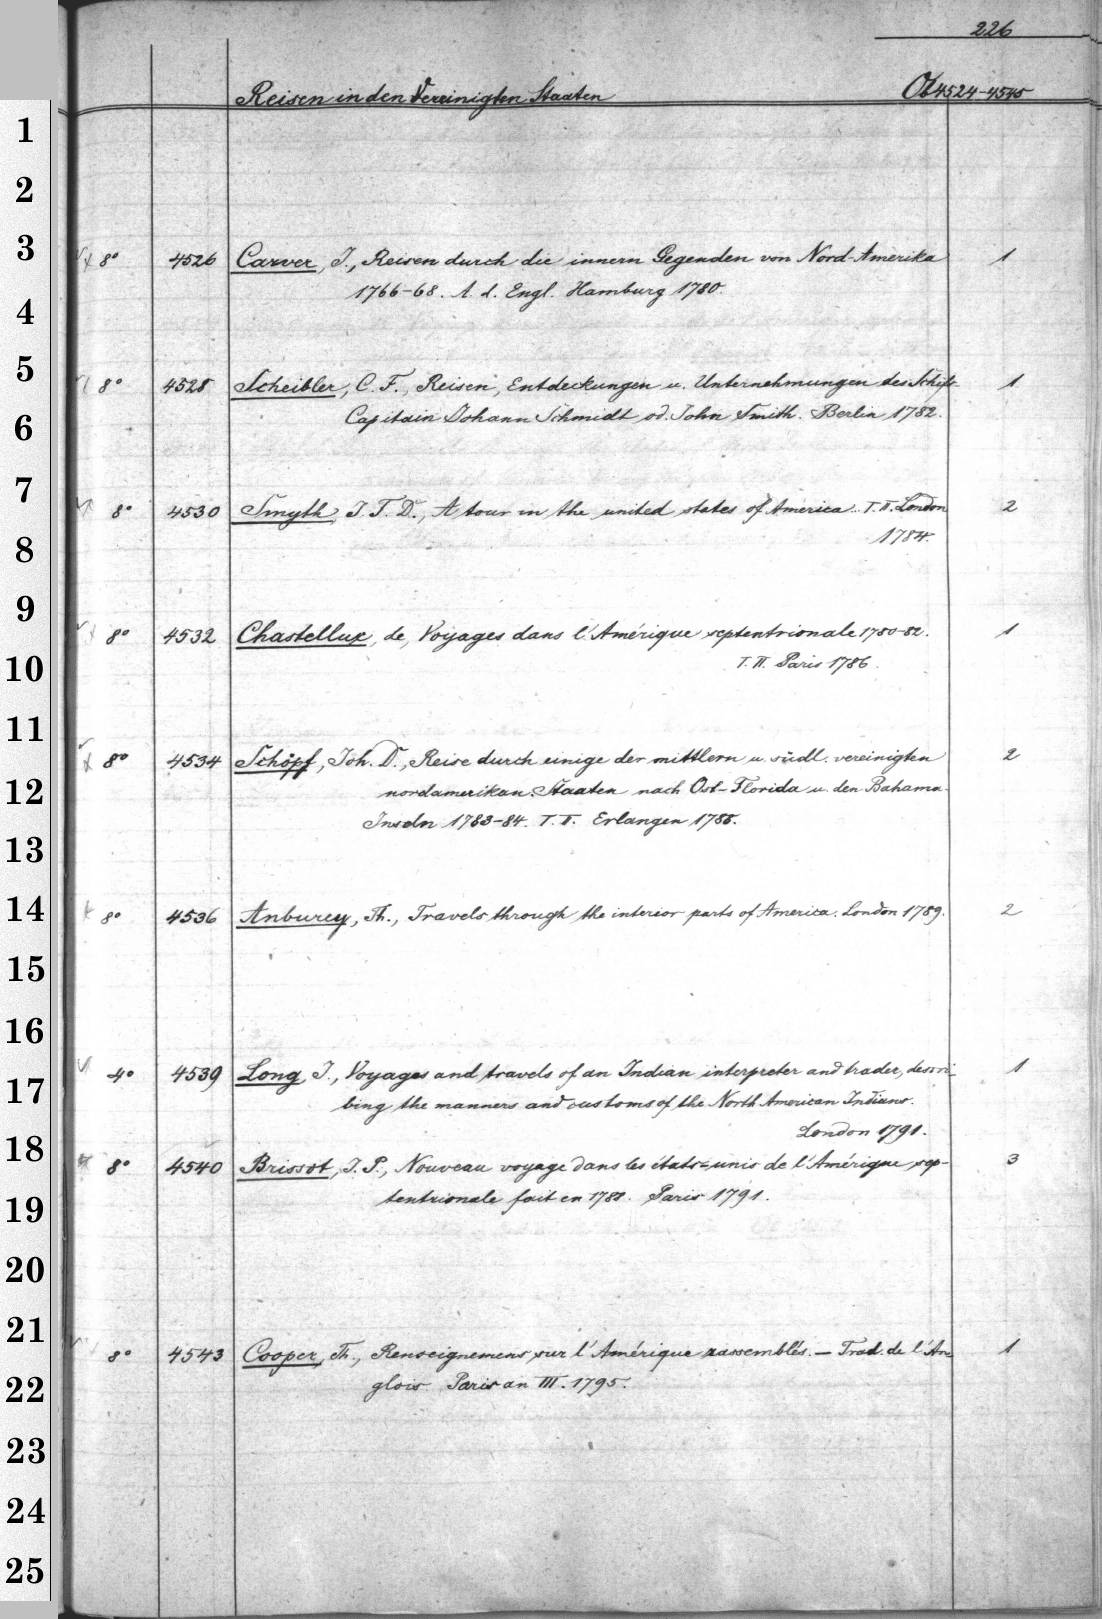 226
Reisen in den Vereinigten Staaten Ob 4524-4545
1
2
3 8° 4526 Carver, J., Reisen durch die innern Gegenden von Nord-Amerika 1
4 1766-68. A. d. Engl. Hamburg 1780.
5 8° 4528 Scheibler, C. F., Reisen, Entdeckungen u. Unternehmungen des Schifs- 1
6 Capitain Johann Schmidt od. John Smith. Berlin 1782.
7 8° 4530 Smyth, J. F. D., A tour in the united states of America. T. II. London 2
8 1784.
9 8° 4532 Chastellux, de, Voyages dans l'Amérique septentrionale 1780-82. 1
10 T. II. Paris 1786.
11 8° 4534 Schöpf, Joh. D., Reise durch einige der mittlern u. südl. vereinigten 2
12 nordamerikan. Staaten nach Ost-Florida u. den Bahama-
13 Inseln 1783-84. T. II. Erlangen 1788.
14 8° 4536 Anburey, Th., Travels through the interior parts of America. London 1789. 2
15
16
17 4° 4539 Long, J., Voyages and travels of an Indian interpreter and trader, descri- 1
bing the manners and customs of the North American Indians.
London 1791.
18 8° 4540 Brissot, J. P., Nouveau voyage dans les états-unis de l'Amérique sep- 3
19 tentrionale fait en 1788. Paris 1791.
20
21 8° 4543 Cooper, Th., Renseignemens sur l'Amérique rassemblés. — Trad. de l'An- 1
22 glois. Paris an III. 1795.
23
24
25